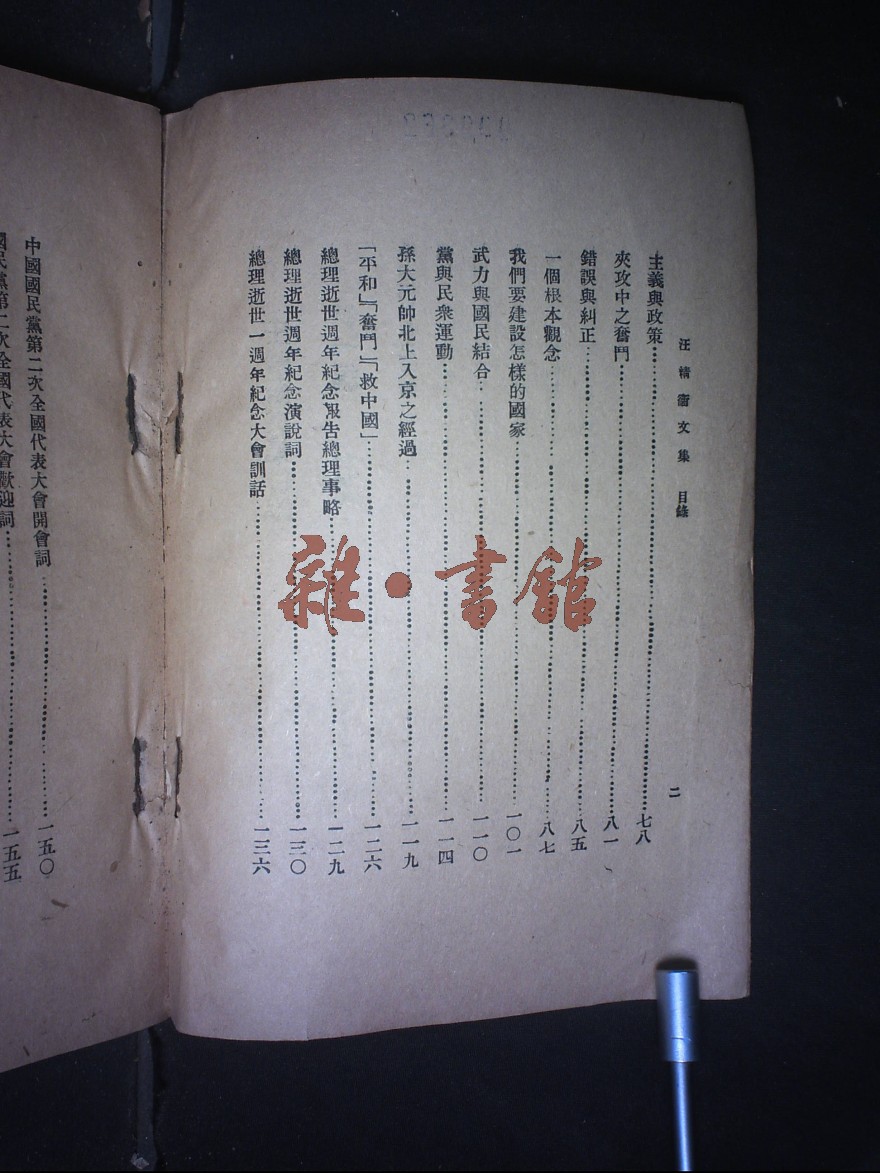 汪精衞文集 目錄
二
主義與政策⋯⋯七八
夾攻中之奮鬥⋯⋯八一
錯誤與糾正⋯⋯八五
一個根本觀念⋯⋯八七
我們要建設怎樣的國家⋯⋯一〇一
武力與國民結合⋯⋯一一〇
黨與民衆運動⋯⋯一一四
孫大元帥北上入京之經過⋯⋯一一九
「平和」「奮鬥」「救中國」⋯⋯一二六
總理逝世週年紀念報告總理事略⋯⋯一二九
總理逝世週年紀念演說詞⋯⋯一三〇
總理逝世一週年紀念大會訓話⋯⋯一三六
中國國民黨第二次全國代表大會開會詞⋯⋯一五〇
國民黨第二次全國代表大會歡迎詞⋯⋯一五五
雜·書館